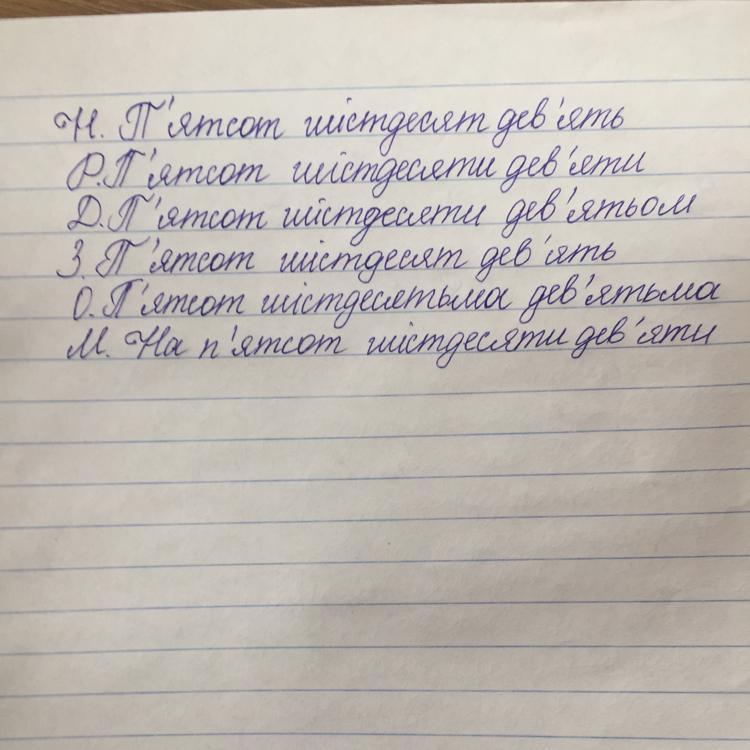 Н. П'ятсот шістдесят дев'ять
Р. П'ятсот шістдесяти дев'яти
Д. П'ятсот шістдесяти дев'ятьом
З. П'ятсот шістдесят дев'ять
О. П'ятсот шістдесятьма дев'ятьма
М. На п'ятсот шістдесяти дев'яти